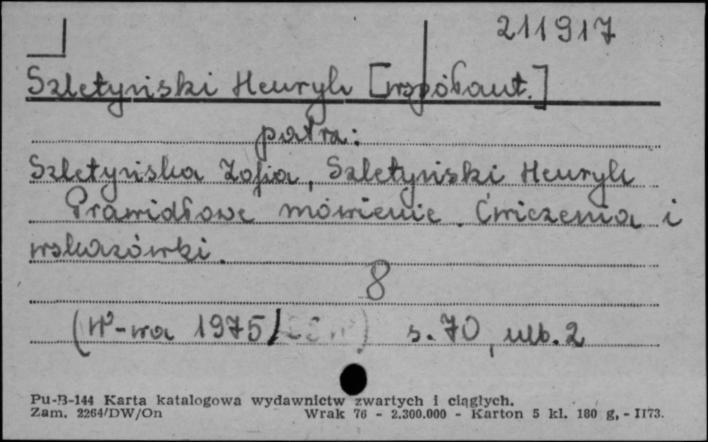 211917
Szletyński Henryk [współaut.]
patrz:
Szletyńska Zofia, Szletyński Henryk
Prawidłowe mówienie. Ćwiczenia i
wskazówki.
8
(W-wa 1975/ ) s. 70, nlb. 2
Pu-B-144 Karta katalogowa wydawnictw zwartych i ciągłych.
Zam. 2264/DW/On Wrak 76 - 2.300.000 - Karton 5 kl. 180 g, - I173.